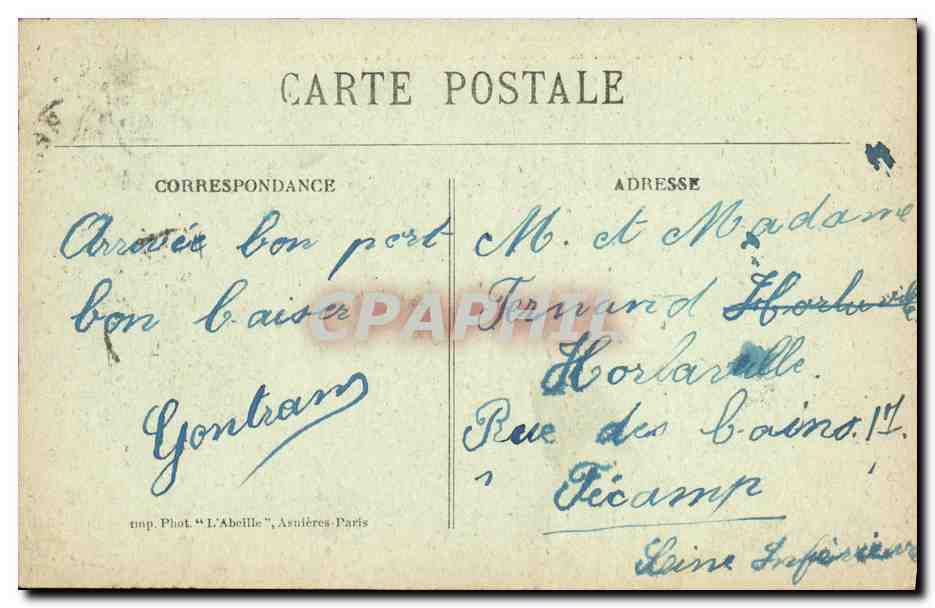 CARTE POSTALE
CORRESPONDANCE
Arrivée bon port
bon baiser
Gontran
Imp. Phot. "L'Abeille", Asnières-Paris
ADRESSE
M. et Madame
Fernand Horlaville
Horlaville.
Rue des bains. 17.
Fécamp
Seine Inférieure
CPAPHIL